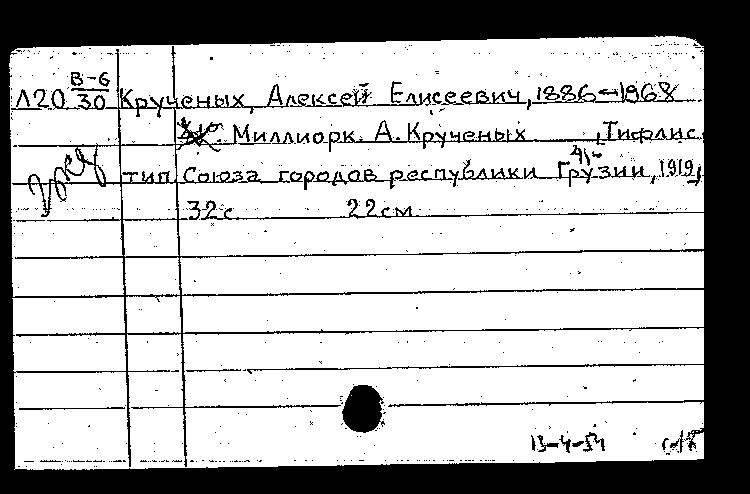 Л20 В-6/30 Крученых, Алексей Елисеевич, 1886-1968
Миллиорк. А. Крученых , Тифлис,
тип. Союза городов республики Грузии, 1919,
32с. 22см.
13-4-54